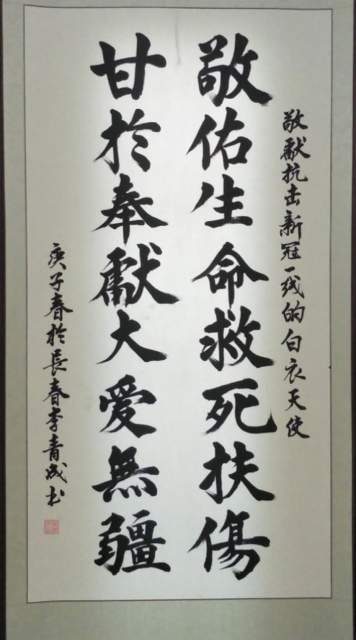 敬獻抗击新冠一线的白衣天使
敬佑生命救死扶傷
甘於奉獻大愛無疆
庚子春於長春李青成书